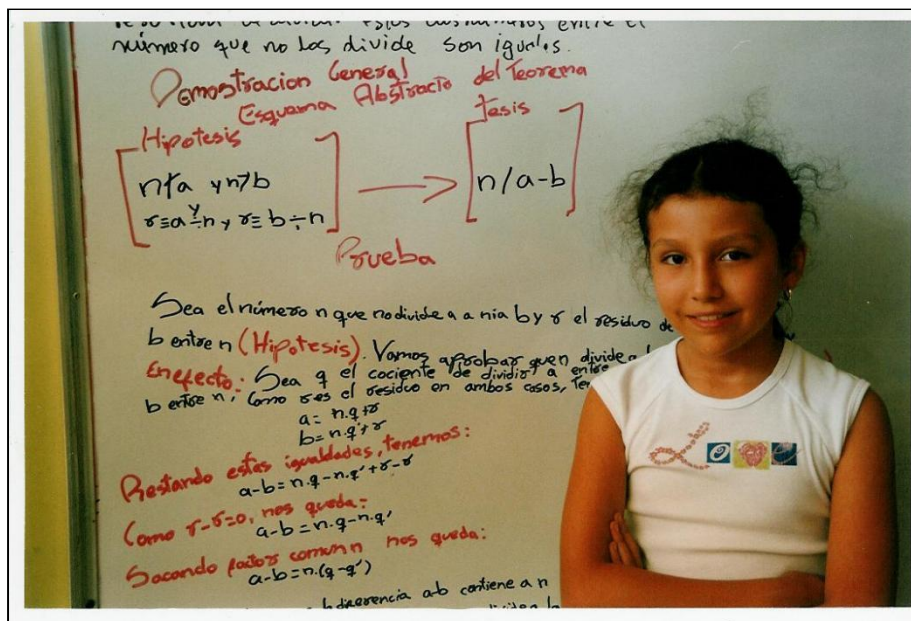 número que no los divide son iguales.
Demostracion General
Esquema Abstracto del Teorema
Hipotesis
Tesis
n∤a y n∤b
y
r≡a÷n y r≡b÷n
n/a-b
Prueba
Sea el número n que no divide a a ni a b y r el residuo de
b entre n (Hipotesis). Vamos aprobar que n divide a
En efecto: Sea q el cociente de dividir a entre
b entre n; Como r es el residuo en ambos casos,
a= n.q+r
b= n.q'+r
Restando estas igualdades, tenemos:
a-b= n.q-n.q'+r-r
Como r-r=0, nos queda:
a-b= n.q-n.q'
Sacando factor comun n nos queda:
a-b= n.(q-q')
diferencia a-b contiene a n